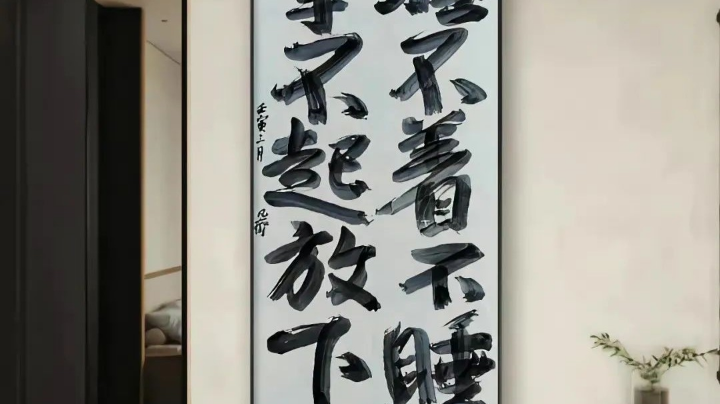 不着不睡
不起放下
壬寅
月